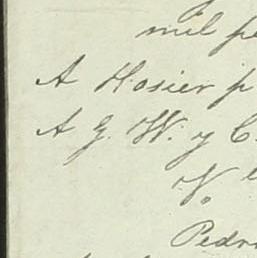 mil pe
A Hosier p
A G. W. y C.
N.
Pedr